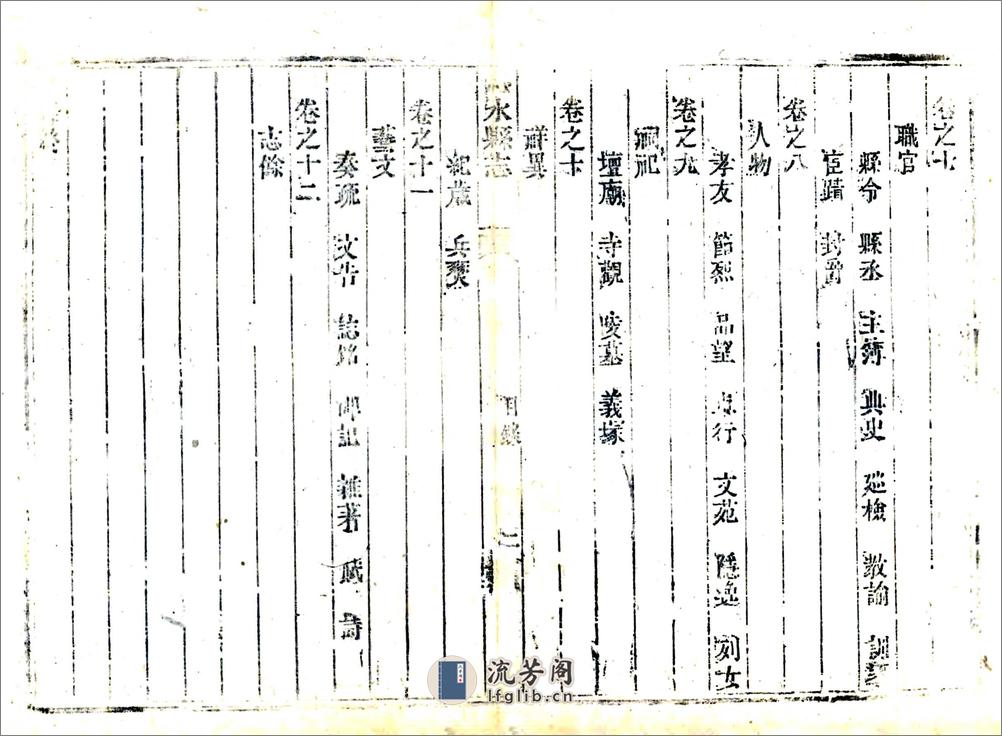 卷之七
職官
縣令 縣丞 主簿 典史 巡檢 教諭 訓導
宦蹟 封爵
卷之八
人物
孝友 節烈 品望 行 文苑 隱逸 列女
卷之九
祠祀
壇廟 寺觀 陵墓 義塚
卷之十
祥異
水縣志 目錄 二
紀歲 兵燹
卷之十一
藝文
奏疏 文告 誌銘 碑記 雜著 賦 詩
卷之十二
志餘
流芳阁
lfglib.cn